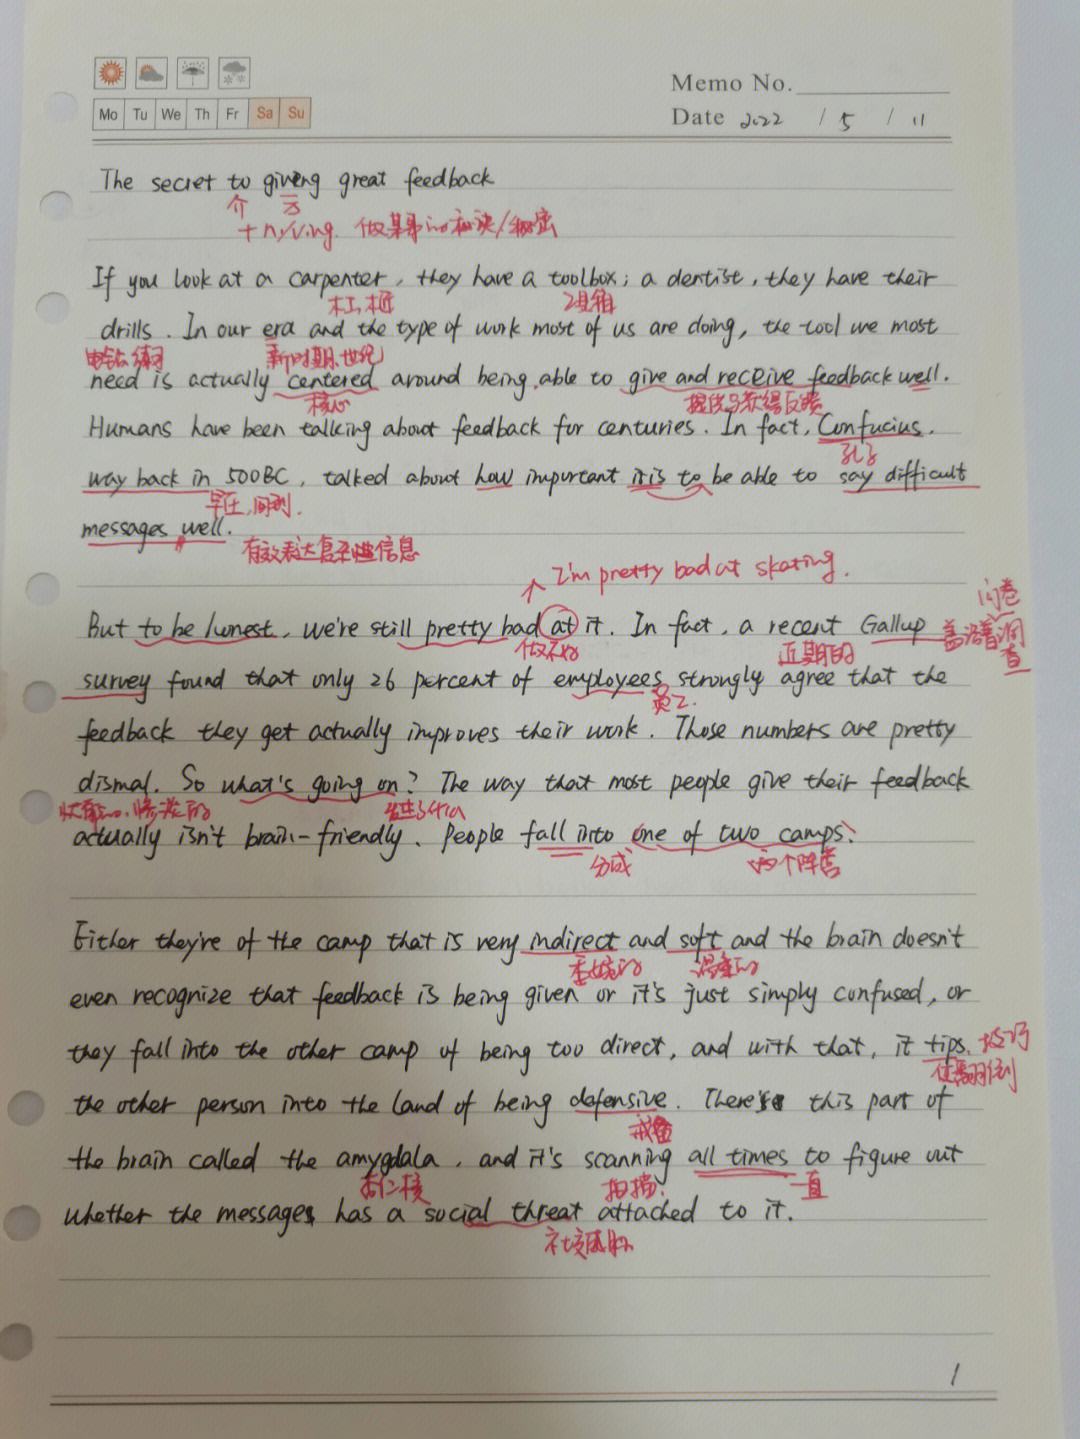 Memo No.
Mo Tu We Th Fr Sa Su
Date 2022 / 5 / 11
The secret to giving great feedback
介
+ n./Ving. 做某事的秘诀/秘密
If you look at a carpenter, they have a toolbox; a dentist, they have their
木工,木匠 工具箱
drills. In our era and the type of work most of us are doing, the tool we most
电钻 练习 新时期.世纪
need is actually centered around being able to give and receive feedback well.
核心 提供与获得反馈
Humans have been talking about feedback for centuries. In fact, Confucius,
孔子
way back in 500BC, talked about how important it is to be able to say difficult
早在,回到.
messages well.
有效表达复杂性信息
I'm pretty bad at skating.
问卷
But to be honest, we're still pretty bad at it. In fact, a recent Gallup 盖洛普调查
做不好 近期的
survey found that only 26 percent of employees strongly agree that the
员工.
feedback they get actually improves their work. Those numbers are pretty
dismal. So what's going on? The way that most people give their feedback
发生了什么
actually isn't brain-friendly. People fall into one of two camps:
分成 两个阵营
Either they're of the camp that is very indirect and soft and the brain doesn't
委婉的 温柔的
even recognize that feedback is being given or it's just simply confused, or
they fall into the other camp of being too direct, and with that, it tips.
使翻倒
the other person into the land of being defensive. There's this part of
戒备
the brain called the amygdala, and it's scanning all times to figure out
杏仁核 扫描. 一直
whether the messages has a social threat attached to it.
社交威胁
1